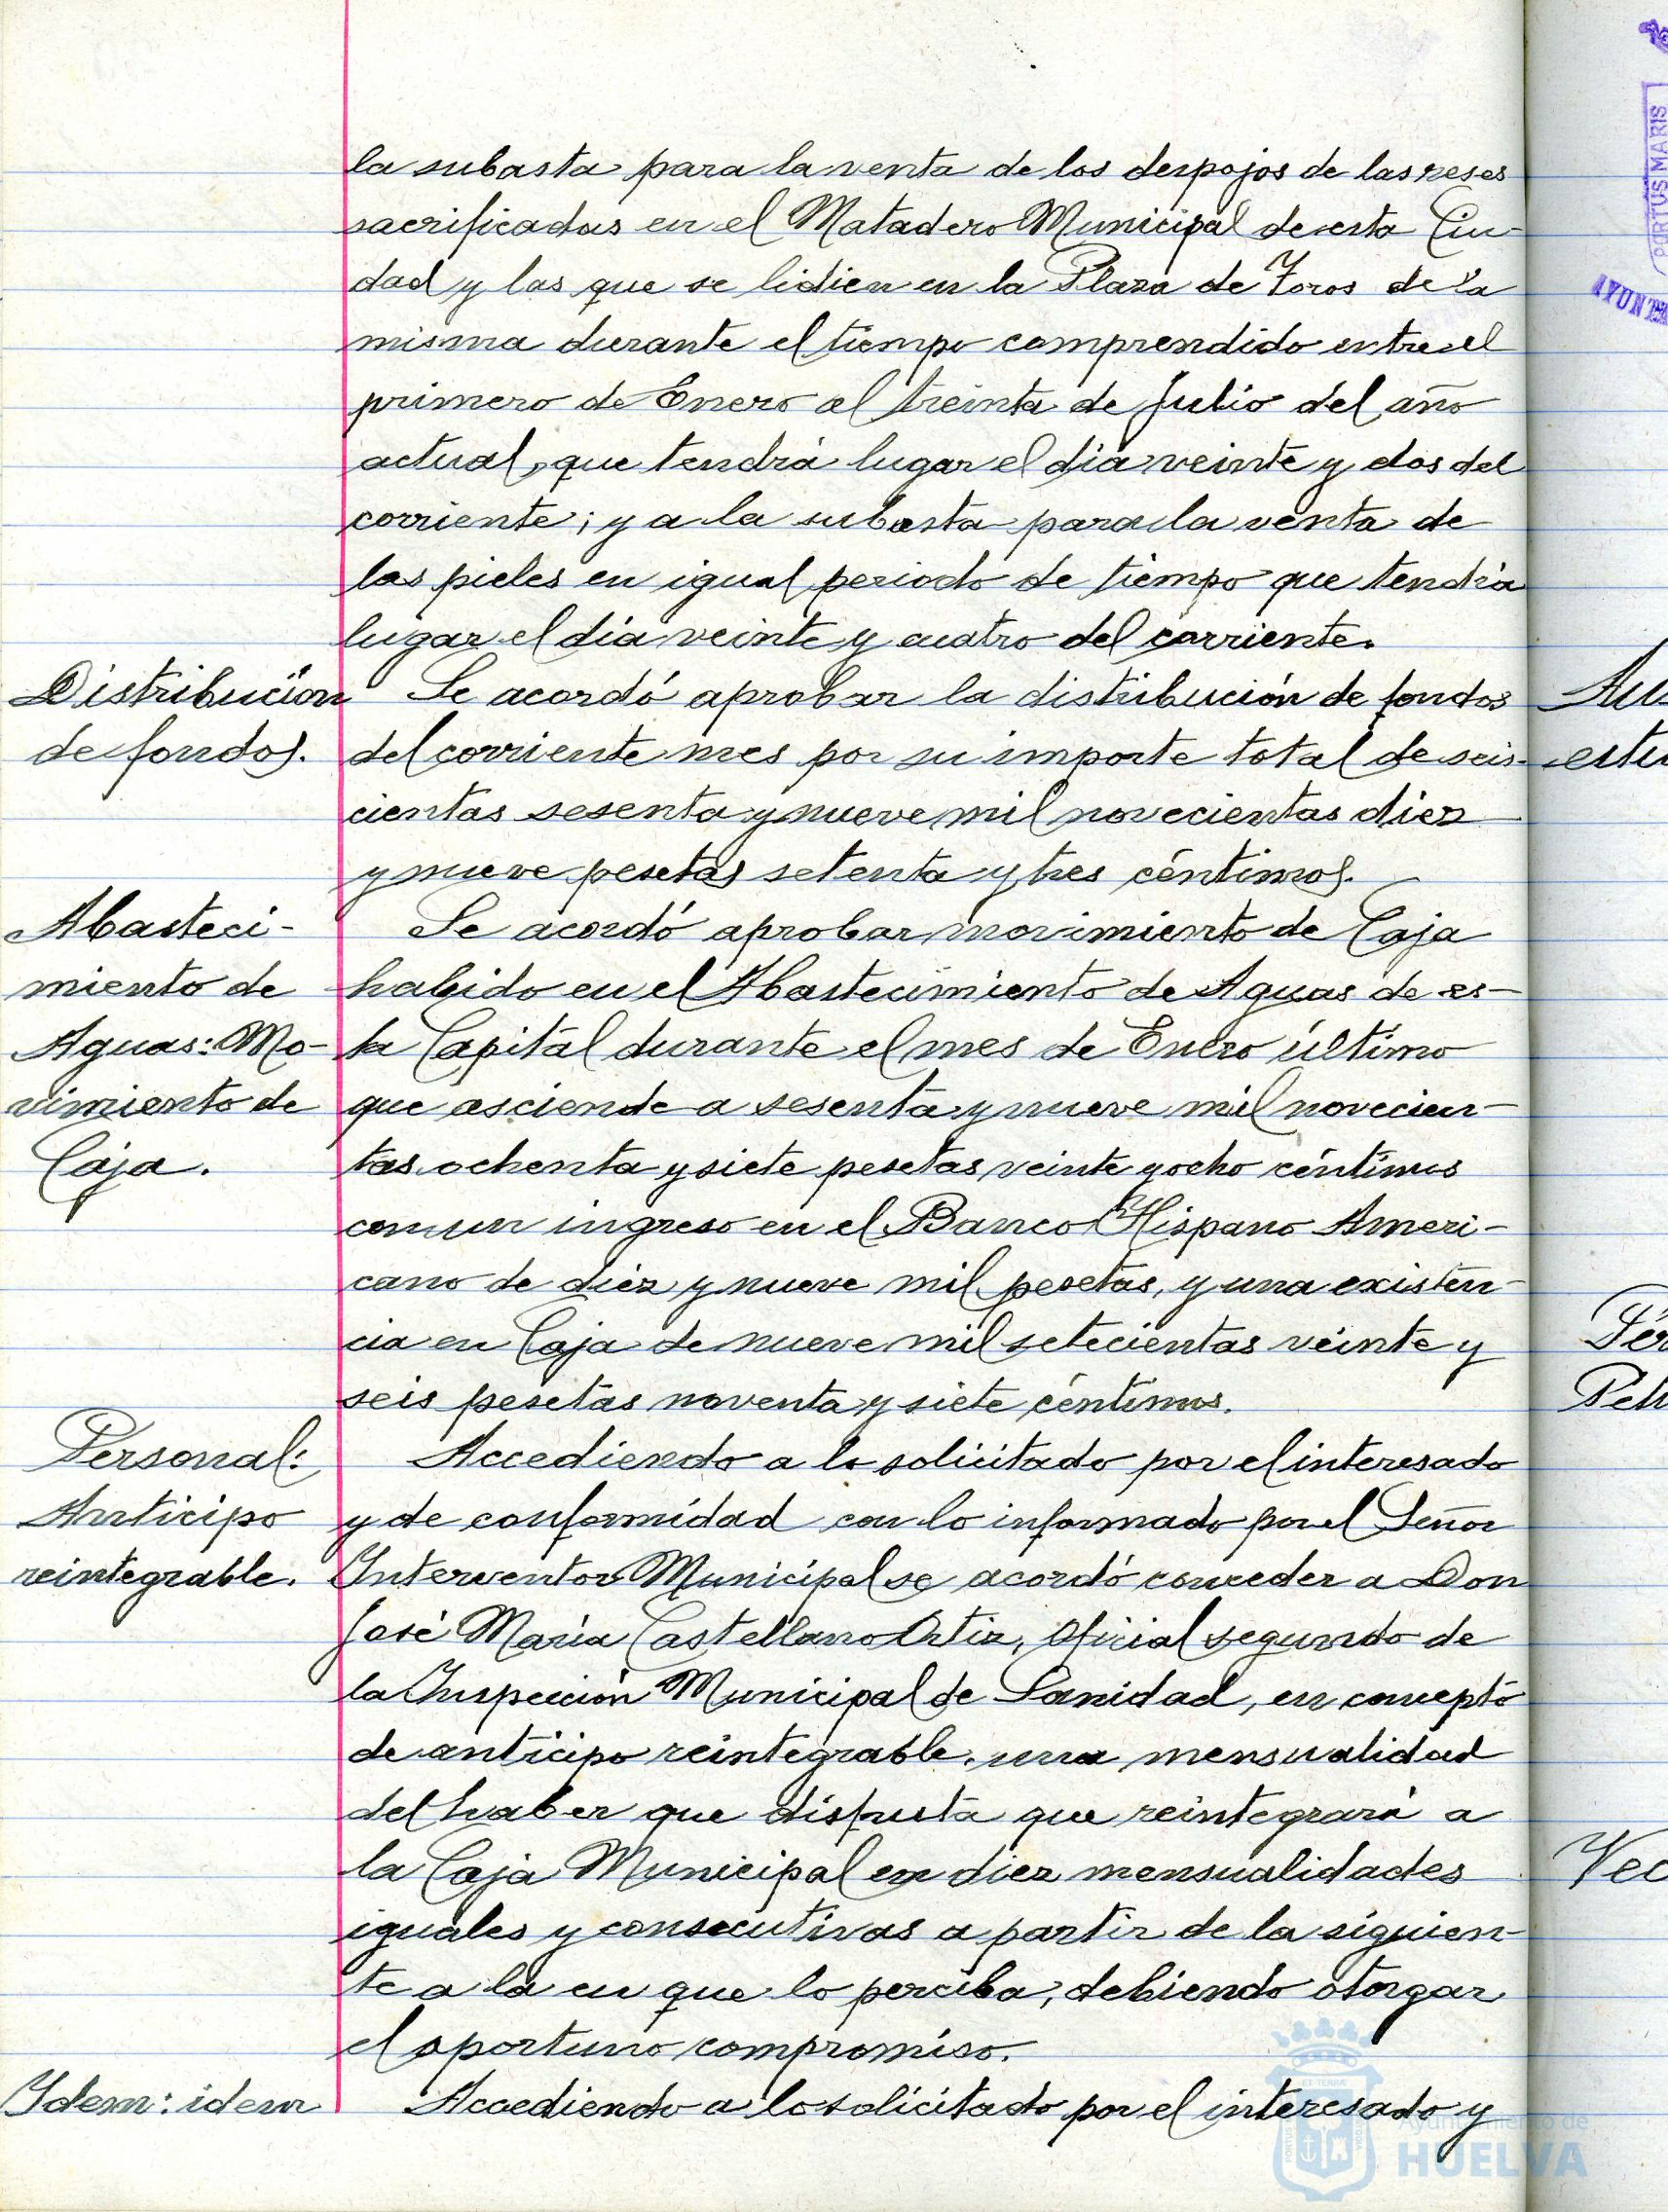 la subasta para la venta de los despojos de las reses
sacrificadas en el Matadero Municipal de esta Ciu-
dad y las que se lidien en la Plaza de Toros de la
misma durante el tiempo comprendido entre el
primero de Enero al treinta de Julio del año
actual, que tendrá lugar el día veinte y dos del
corriente; y a la subasta para la venta de
las pieles en igual periodo de tiempo que tendrá
lugar el día veinte y cuatro del corriente.
Distribución
de fondos.
Se acordó aprobar la distribución de fondos
del corriente mes por su importe total de seis-
cientas sesenta y nueve mil novecientas diez
y nueve pesetas setenta y tres céntimos.
Abasteci-
miento de
Aguas: Mo-
vimiento de
Caja.
Se acordó aprobar movimiento de Caja
habido en el Abastecimiento de Aguas de es-
ta Capital durante el mes de Enero último
que asciende a sesenta y nueve mil novecien-
tas ochenta y siete pesetas veinte y ocho céntimos
con un ingreso en el Banco Hispano Ameri-
cano de diez y nueve mil pesetas, y una existen-
cia en Caja de nueve mil setecientas veinte y
seis pesetas noventa y siete céntimos.
Personal:
Anticipo
reintegrable.
Accediendo a lo solicitado por el interesado
y de conformidad con lo informado por el Señor
Interventor Municipal se acordó conceder a Don
José María Castellano Ortiz, Oficial segundo de
la Inspección Municipal de Sanidad, en concepto
de anticipo reintegrable, una mensualidad
del haber que disfruta que reintegrará a
la Caja Municipal en diez mensualidades
iguales y consecutivas a partir de la siguien-
te a la en que lo perciba, debiendo otorgar
el oportuno compromiso.
Idem: idem
Accediendo a lo solicitado por el interesado y
PORTUS MARIS
AYUNT
Au-
estu
Per
Pet
Vec
Ayuntamiento de
HUELVA